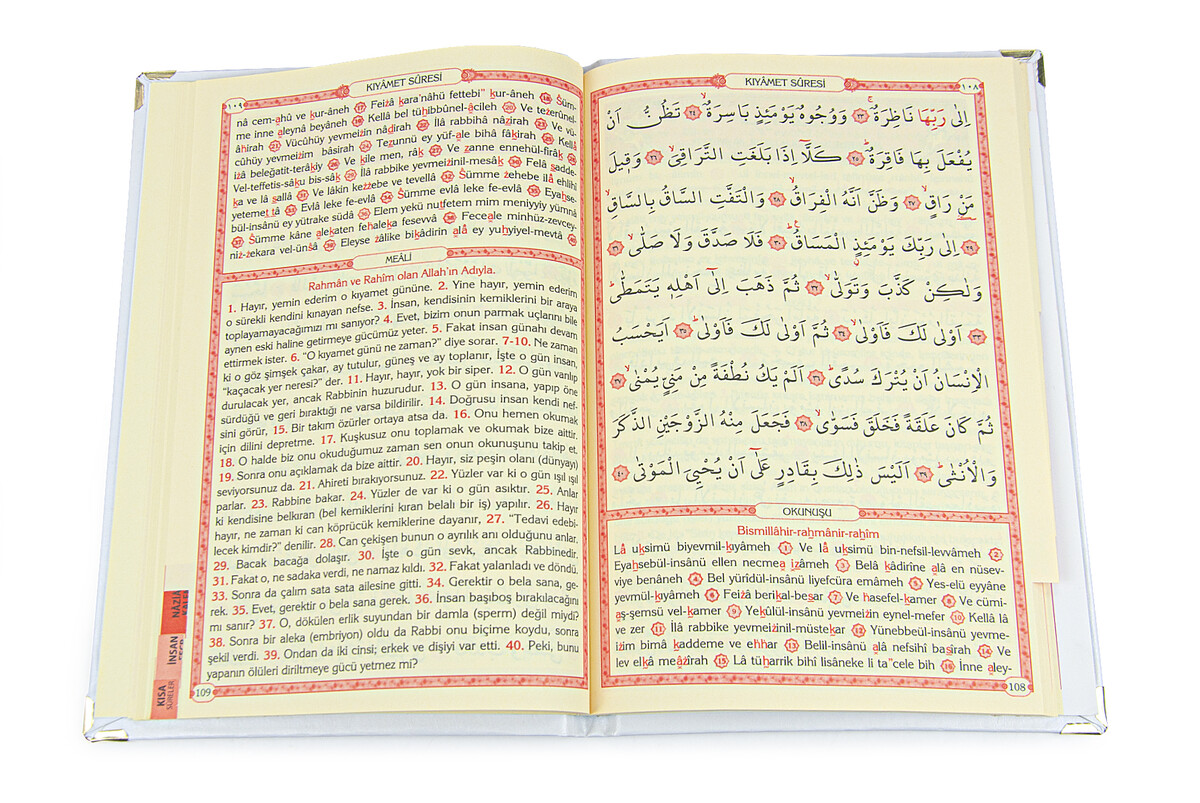 KIYÂMET SÛRESİ
١٠٨
اِلٰى رَبِّهَا نَاظِرَةٌۚ ﴿٢٣﴾ وَوُجُوهٌ يَوْمَئِذٍ بَاسِرَةٌۙ ﴿٢٤﴾ تَظُنُّ اَنْ
يُفْعَلَ بِهَا فَاقِرَةٌؕ ﴿٢٥﴾ كَلَّٓا اِذَا بَلَغَتِ التَّرَاقِيَۙ ﴿٢٦﴾ وَق۪يلَ
مَنْ رَاقٍۙ ﴿٢٧﴾ وَظَنَّ اَنَّهُ الْفِرَاقُۙ ﴿٢٨﴾ وَالْتَفَّتِ السَّاقُ بِالسَّاقِۙ
﴿٢٩﴾ اِلٰى رَبِّكَ يَوْمَئِذٍ الْمَسَاقُؕ ﴿٣٠﴾ فَلَا صَدَّقَ وَلَا صَلّٰىۙ ﴿٣١﴾
وَلٰكِنْ كَذَّبَ وَتَوَلّٰىۙ ﴿٣٢﴾ ثُمَّ ذَهَبَ اِلٰٓى اَهْلِه۪ يَتَمَطّٰىؕ
﴿٣٣﴾ اَوْلٰى لَكَ فَاَوْلٰىۙ ﴿٣٤﴾ ثُمَّ اَوْلٰى لَكَ فَاَوْلٰىؕ ﴿٣٥﴾ اَيَحْسَبُ
الْاِنْسَانُ اَنْ يُتْرَكَ سُدًىؕ ﴿٣٦﴾ اَلَمْ يَكُ نُطْفَةً مِنْ مَنِيٍّ يُمْنٰىۙ ﴿٣٧﴾
ثُمَّ كَانَ عَلَقَةً فَخَلَقَ فَسَوّٰىۙ ﴿٣٨﴾ فَجَعَلَ مِنْهُ الزَّوْجَيْنِ الذَّكَرَ
وَالْاُنْثٰىؕ ﴿٣٩﴾ اَلَيْسَ ذٰلِكَ بِقَادِرٍ عَلٰٓى اَنْ يُحْيِيَ الْمَوْتٰى ﴿٤٠﴾
OKUNUŞU
Bismillâhir-rahmânir-rahîm
Lâ uksimü biyevmil-kıyâmeh (1) Ve lâ uksimü bin-nefsil-levvâmeh (2)
Eyahsebül-insânü ellen necmea ızâmeh (3) Belâ kâdirîne alâ en nüsev-
viye benâneh (4) Bel yürîdül-insânü liyefcüra emâmeh (5) Yes-elü eyyâne
yevmül-kıyâmeh (6) Feizâ berikal-besar (7) Ve hasefel-kamer (8) Ve cümi-
aş-şemsü vel-kamer (9) Yekûlül-insânü yevmeizin eynel-mefer (10) Kellâ lâ
ve zer (11) İlâ rabbike yevmeizinil-müstekar (12) Yünebbeül-insânü yevme-
izim bimâ kaddeme ve ehhar (13) Belil-insânü alâ nefsihî basîrah (14) Ve
lev elkâ meâzîrah (15) Lâ tüharrik bihî lisâneke li ta"cele bih (16) İnne aley-
108
١٠٩
KIYÂMET SÛRESİ
nâ cem-ahû ve kur-âneh (17) Feizâ kara'nâhü fettebi" kur-âneh (18) Süm-
me inne aleynâ beyâneh (19) Kellâ bel tühibbûnel-âcileh (20) Ve tezerûnel-
âhirah (21) Vücûhüy yevmeizin nâdirah (22) İlâ rabbihâ nâzirah (23) Ve vü-
cûhüy yevmeizim bâsirah (24) Tezunnü ey yüf-ale bihâ fâkirah (25) Kellâ
izâ beleğatit-terâkiy (26) Ve kîle men, râk (27) Ve zanne ennehül-firâk (28)
Vel-teffetis-sâku bis-sâk (29) İlâ rabbike yevmeizinil-mesâk (30) Felâ sadde-
ka ve lâ sallâ (31) Ve lâkin kezzebe ve tevellâ (32) Sümme zehebe ilâ ehlihî
yetemettâ (33) Evlâ leke fe-evlâ (34) Sümme evlâ leke fe-evlâ (35) Eyahse-
bül-insânü ey yütrake südâ (36) Elem yekü nutfetem mim meniyyiy yümnâ
(37) Sümme kâne alekaten fehaleka fesevvâ (38) Feceale minhüz-zevcey-
niz-zekara vel-ünsâ (39) Eleyse zâlike bikâdirin alâ ey yuhyiyel-mevtâ (40)
MEÂLİ
Rahmân ve Rahîm olan Allah'ın Adıyla.
1. Hayır, yemin ederim o kıyamet gününe. 2. Yine hayır, yemin ederim
o sürekli kendini kınayan nefse. 3. İnsan, kendisinin kemiklerini bir araya
toplayamayacağımızı mı sanıyor? 4. Evet, bizim onun parmak uçlarını bile
aynen eski haline getirmeye gücümüz yeter. 5. Fakat insan günahı devam
ettirmek ister. 6. "O kıyamet günü ne zaman?" diye sorar. 7-10. Ne zaman
ki o göz şimşek çakar, ay tutulur, güneş ve ay toplanır, İşte o gün insan,
"kaçacak yer neresi?" der. 11. Hayır, hayır, yok bir siper. 12. O gün varılıp
durulacak yer, ancak Rabbinin huzurudur. 13. O gün insana, yapıp öne
sürdüğü ve geri bıraktığı ne varsa bildirilir. 14. Doğrusu insan kendi nef-
sini görür, 15. Bir takım özürler ortaya atsa da. 16. Onu hemen okumak
için dilini depretme. 17. Kuşkusuz onu toplamak ve okumak bize aittir.
18. O halde biz onu okuduğumuz zaman sen onun okunuşunu takip et.
19. Sonra onu açıklamak da bize aittir. 20. Hayır, siz peşin olanı (dünyayı)
seviyorsunuz da. 21. Ahireti bırakıyorsunuz. 22. Yüzler var ki o gün ışıl ışıl
parlar. 23. Rabbine bakar. 24. Yüzler de var ki o gün asıktır. 25. Anlar
ki kendisine belkıran (bel kemiklerini kıran belalı bir iş) yapılır. 26. Hayır
hayır, ne zaman ki can köprücük kemiklerine dayanır, 27. "Tedavi edebi-
lecek kimdir?" denilir. 28. Can çekişen bunun o ayrılık anı olduğunu anlar.
29. Bacak bacağa dolaşır. 30. İşte o gün sevk, ancak Rabbinedir.
31. Fakat o, ne sadaka verdi, ne namaz kıldı. 32. Fakat yalanladı ve döndü.
33. Sonra da çalım sata sata ailesine gitti. 34. Gerektir o bela sana, ge-
rek. 35. Evet, gerektir o bela sana gerek. 36. İnsan başıboş bırakılacağını
mı sanır? 37. O, dökülen erlik suyundan bir damla (sperm) değil miydi?
38. Sonra bir aleka (embriyon) oldu da Rabbi onu biçime koydu, sonra
şekil verdi. 39. Ondan da iki cinsi; erkek ve dişiyi var etti. 40. Peki, bunu
yapanın ölüleri diriltmeye gücü yetmez mi?
109
NÂZİA
İNSAN
KISA
SÛRELER